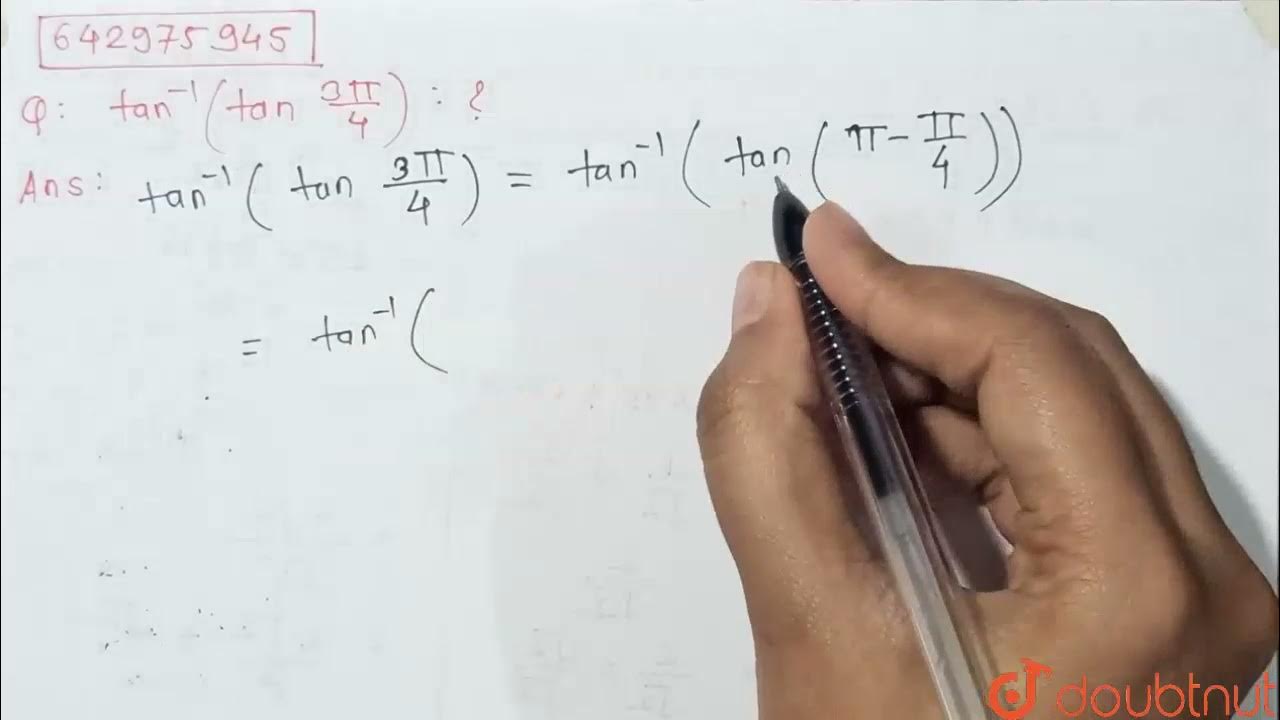 642975945
Q: tan⁻¹(tan 3π/4) : ?
Ans: tan⁻¹( tan 3π/4 ) = tan⁻¹( tan ( π - π/4 ))
= tan⁻¹(
doubtnut